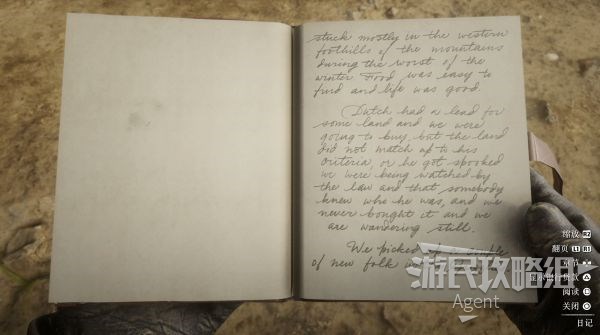 stuck mostly in the western
foothills of the mountains
during the worst of the
winter. Food was easy to
find and life was good.
Dutch had a lead for
some land and we were
going to buy, but the land
did not match up to his
criteria, or he got spooked
we were being watched by
the law and that somebody
knew who he was, and we
never bought it and we
are wandering still.
We picked
of new folk
游民攻略组
Agent
缩放 R2
翻页 L1 R1
阅读
关闭
日记